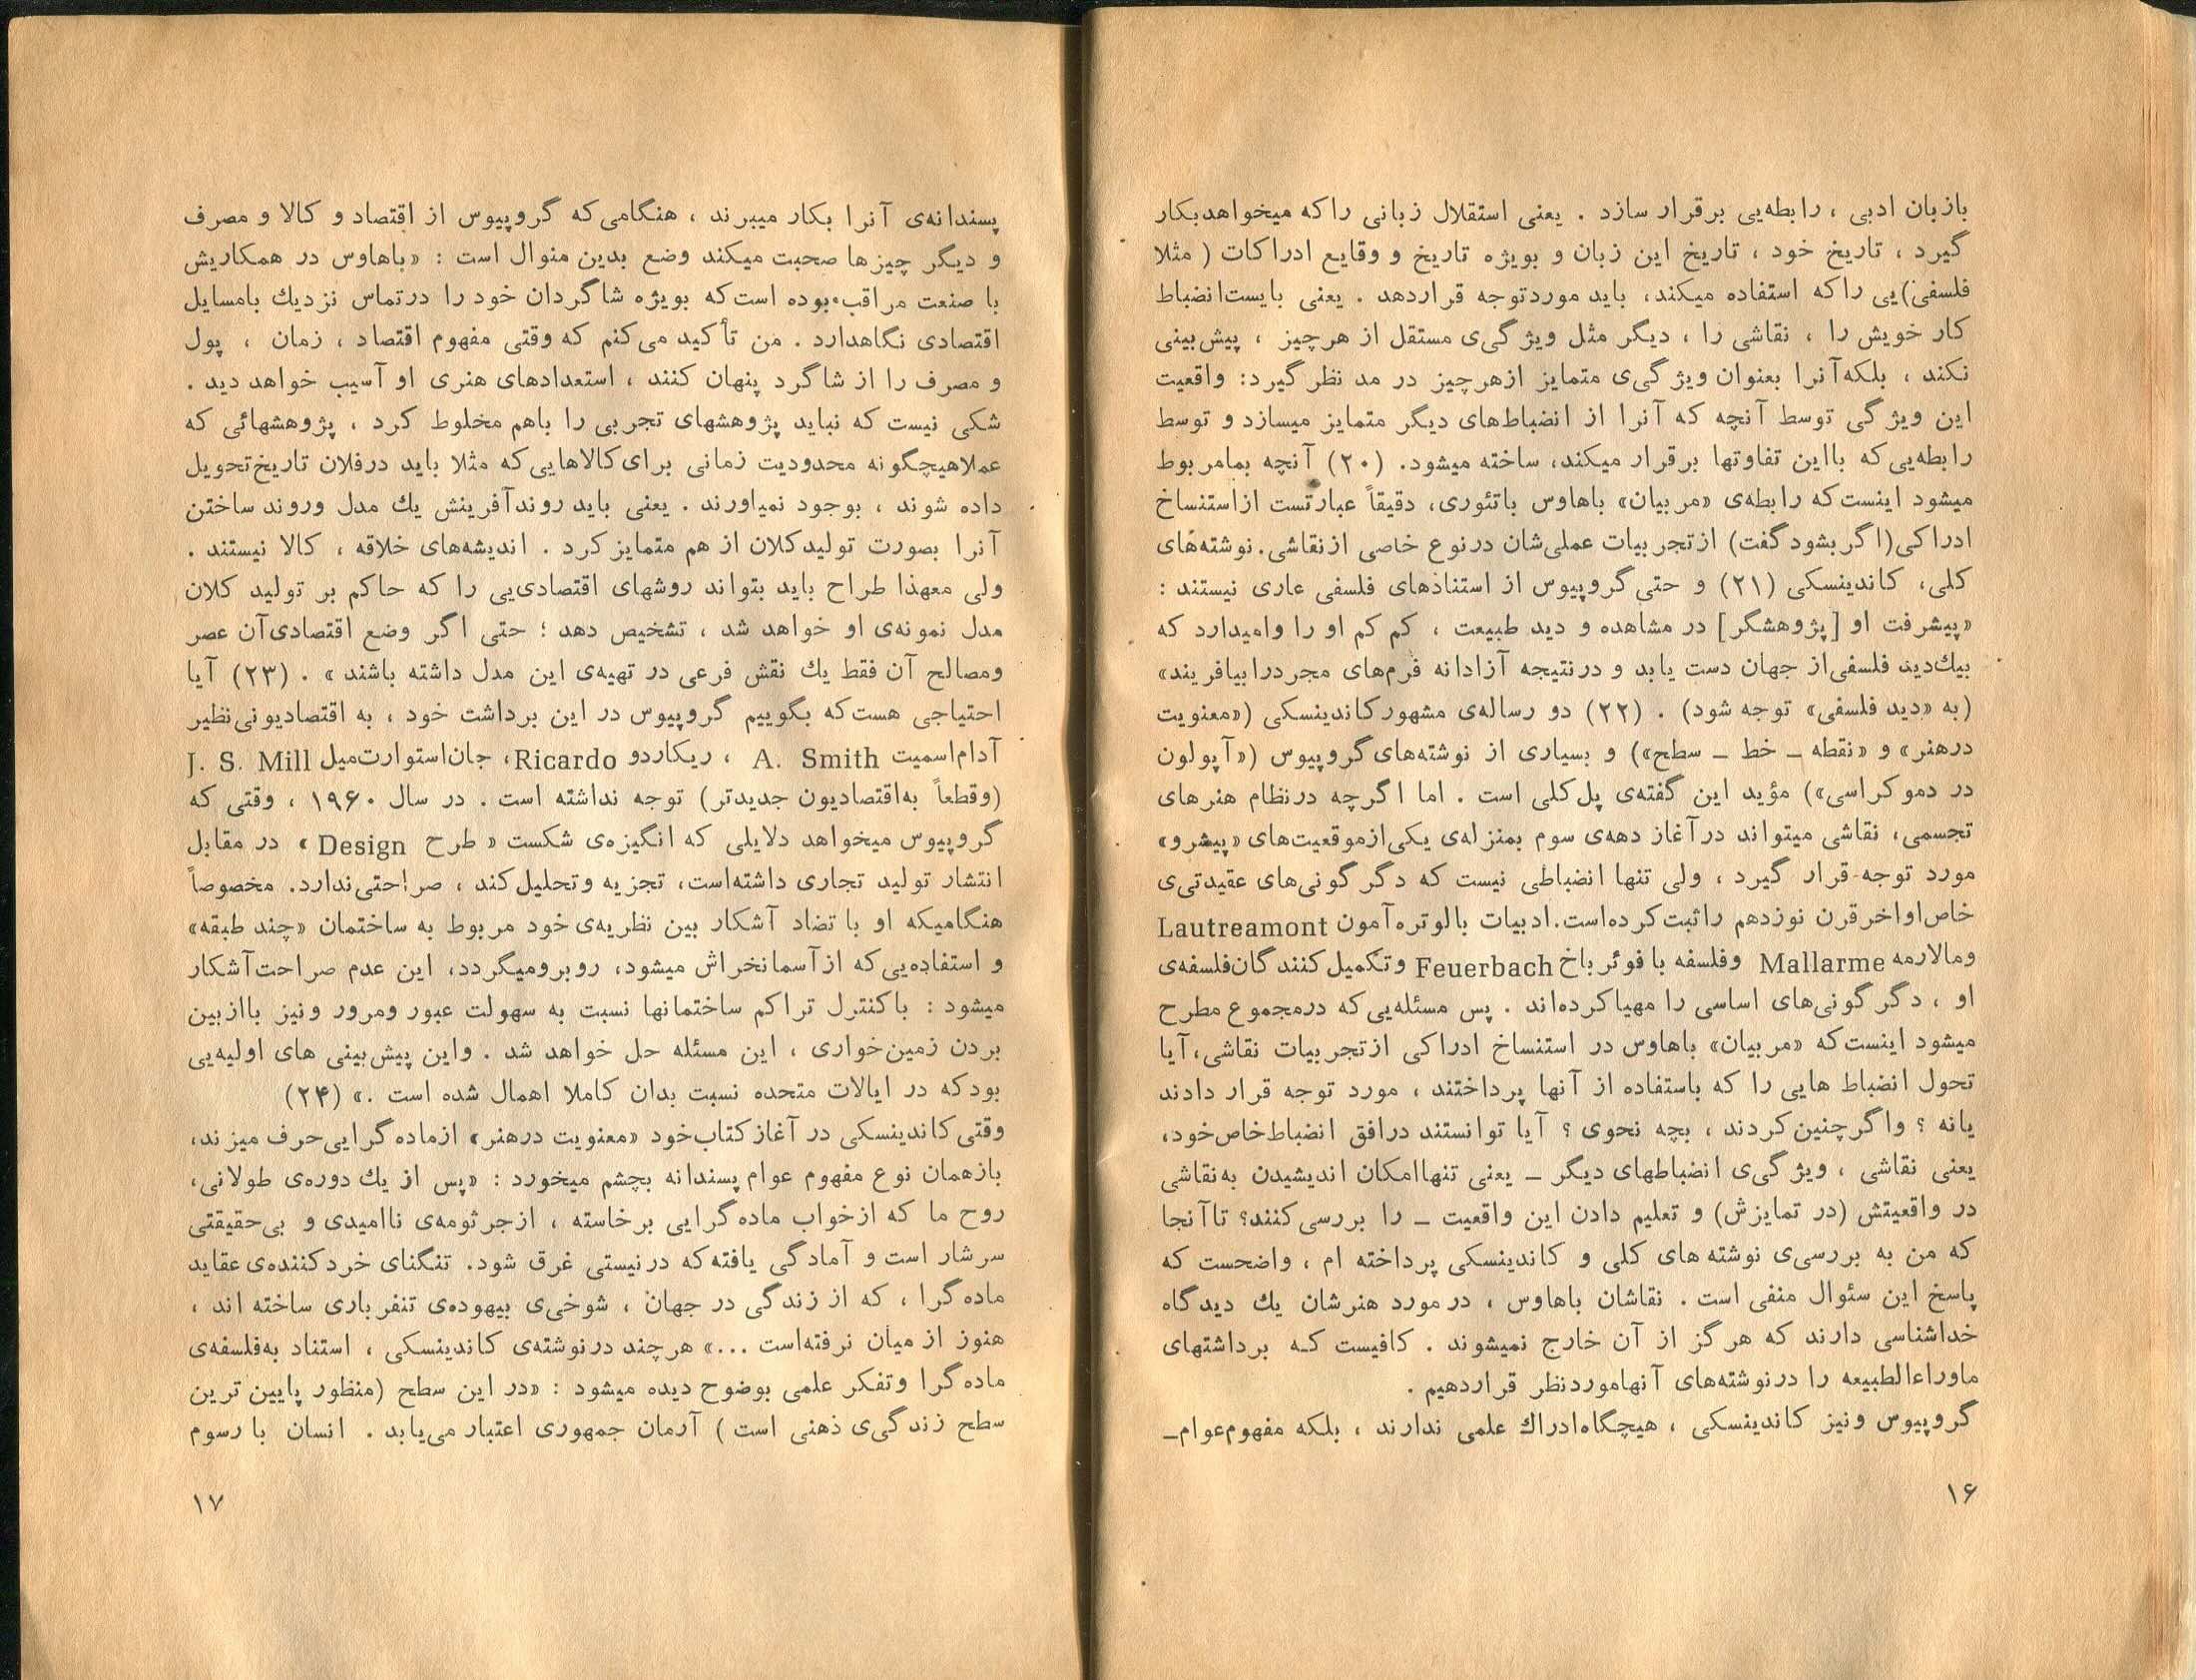 بازبان ادبی ، رابطه‌یی برقرار سازد . یعنی استقلال زبانی راکه میخواهدبکار
گیرد ، تاریخ خود ، تاریخ این زبان و بویژه تاریخ و وقایع ادراکات ( مثلا
فلسفی)یی راکه استفاده میکند، باید موردتوجه قراردهد . یعنی بایست‌انضباط
کار خویش را ، نقاشی را ، دیگر مثل ویژگی‌ی مستقل از هرچیز ، پیش‌بینی
نکند ، بلکه‌آنرا بعنوان ویژگی‌ی متمایز ازهرچیز در مد نظر گیرد: واقعیت
این ویژگی توسط آنچه که آنرا از انضباط‌های دیگر متمایز میسازد و توسط
رابطه‌یی‌که بااین تفاوتها برقرار میکند، ساخته میشود. (۲۰) آنچه بمامربوط
میشود اینست‌که رابطه‌ی «مربیان» باهاوس باتئوری، دقیقاً عبارتست ازاستنساخ
ادراکی(اگربشودگفت) ازتجربیات عملی‌شان درنوع خاصی ازنقاشی.نوشته‌های
کلی، کاندینسکی (۲۱) و حتی‌گروپیوس از استنادهای فلسفی عاری نیستند :
«پیشرفت او [پژوهشگر] در مشاهده و دید طبیعت ، کم کم او را وامیدارد که
بیك‌دید فلسفی‌از جهان دست یابد و درنتیجه آزادانه فرم‌های مجردرابیافریند»
(به «دید فلسفی» توجه شود) . (۲۲) دو رساله‌ی مشهورکاندینسکی («معنویت
درهنر» و «نقطه ـ خط ـ سطح») و بسیاری از نوشته‌های‌گروپیوس («آپولون
در دموکراسی») مؤید این گفته‌ی پل‌کلی است . اما اگرچه درنظام هنرهای
تجسمی، نقاشی میتواند درآغاز دهه‌ی سوم بمنزله‌ی یکی‌ازموقعیت‌های «پیشرو»
مورد توجه قرار گیرد ، ولی تنها انضباطی نیست که دگرگونی‌های عقیدتی‌ی
خاص‌اواخرقرن نوزدهم راثبت‌کرده‌است.ادبیات بالوتره‌آمون Lautreamont
ومالارمه Mallarme وفلسفه با فوئرباخ Feuerbach وتکمیل‌کنندگان‌فلسفه‌ی
او ، دگرگونی‌های اساسی را مهیاکرده‌اند . پس مسئله‌یی‌که درمجموع مطرح
میشود اینست‌که «مربیان» باهاوس در استنساخ ادراکی ازتجربیات نقاشی،آیا
تحول انضباط هایی را که باستفاده از آنها پرداختند ، مورد توجه قرار دادند
یانه ؟ واگرچنین‌کردند ، بچه نحوی ؟ آیا توانستند درافق انضباط‌خاص‌خود،
یعنی نقاشی ، ویژگی‌ی انضباطهای دیگر ـ یعنی تنهاامکان اندیشیدن به‌نقاشی
در واقعیتش (در تمایزش) و تعلیم دادن این واقعیت ـ را بررسی‌کنند؟ تاآنجا
که من به بررسی‌ی نوشته های کلی و کاندینسکی پرداخته ام ، واضحست که
پاسخ این سئوال منفی است . نقاشان باهاوس ، درمورد هنرشان یك دیدگاه
خداشناسی دارند که هرگز از آن خارج نمیشوند . کافیست که برداشتهای
ماوراءالطبیعه را درنوشته‌های آنهاموردنظر قراردهیم .
گروپیوس ونیز کاندینسکی ، هیچگاه‌ادراك علمی ندارند ، بلکه مفهوم‌عوام‌ـ
۱۶
پسندانه‌ی آنرا بکار میبرند ، هنگامی‌که گروپیوس از اقتصاد و کالا و مصرف
و دیگر چیزها صحبت میکند وضع بدین منوال است : «باهاوس در همکاریش
با صنعت مراقب بوده است‌که بویژه شاگردان خود را درتماس نزدیك بامسایل
اقتصادی نگاهدارد . من تأکید می‌کنم که وقتی مفهوم اقتصاد ، زمان ، پول
و مصرف را از شاگرد پنهان کنند ، استعدادهای هنری او آسیب خواهد دید .
شکی نیست که نباید پژوهشهای تجربی را باهم مخلوط کرد ، پژوهشهائی که
عملاهیچگونه محدودیت زمانی برای‌کالاهایی‌که مثلا باید درفلان تاریخ‌تحویل
داده شوند ، بوجود نمیاورند . یعنی باید روندآفرینش یك مدل وروند ساختن
آنرا بصورت تولیدکلان از هم متمایزکرد . اندیشه‌های خلاقه ، کالا نیستند .
ولی معهذا طراح باید بتواند روشهای اقتصادی‌یی را که حاکم بر تولید کلان
مدل نمونه‌ی او خواهد شد ، تشخیص دهد ؛ حتی اگر وضع اقتصادی‌آن عصر
ومصالح آن فقط یك نقش فرعی در تهیه‌ی این مدل داشته باشند » . (۲۳) آیا
احتیاجی هست‌که بگوییم گروپیوس در این برداشت خود ، به اقتصادیونی‌نظیر
آدام‌اسمیت A. Smith ، ریکاردو Ricardo، جان‌استوارت‌میل J. S. Mill
(وقطعاً به‌اقتصادیون جدیدتر) توجه نداشته است . در سال ۱۹۶۰ ، وقتی که
گروپیوس میخواهد دلایلی که انگیزه‌ی شکست « طرح Design » در مقابل
انتشار تولید تجاری داشته‌است، تجزیه وتحلیل‌کند ، صراحتی‌ندارد. مخصوصاً
هنگامیکه او با تضاد آشکار بین نظریه‌ی خود مربوط به ساختمان «چند طبقه»
و استفاده‌یی‌که ازآسمانخراش میشود، روبرومیگردد، این عدم صراحت‌آشکار
میشود : باکنترل تراکم ساختمانها نسبت به سهولت عبور ومرور ونیز باازبین
بردن زمین‌خواری ، این مسئله حل خواهد شد . واین پیش‌بینی های اولیه‌یی
بودکه در ایالات متحده نسبت بدان کاملا اهمال شده است .» (۲۴)
وقتی‌کاندینسکی در آغازکتاب‌خود «معنویت درهنر» ازماده‌گرایی‌حرف میزند،
بازهمان نوع مفهوم عوام‌پسندانه بچشم میخورد : «پس از یك دوره‌ی طولانی،
روح ما که ازخواب ماده‌گرایی برخاسته ، ازجرثومه‌ی ناامیدی و بی‌حقیقتی
سرشار است و آمادگی یافته‌که درنیستی غرق شود. تنگنای خردکننده‌ی عقاید
ماده‌گرا ، که از زندگی در جهان ، شوخی‌ی بیهوده‌ی تنفرباری ساخته اند ،
هنوز از میان نرفته‌است ...» هرچند درنوشته‌ی کاندینسکی ، استناد به‌فلسفه‌ی
ماده‌گرا وتفکر علمی بوضوح دیده میشود : «در این سطح (منظور پایین ترین
سطح زندگی‌ی ذهنی است ) آرمان جمهوری اعتبار می‌یابد . انسان با رسوم
۱۷